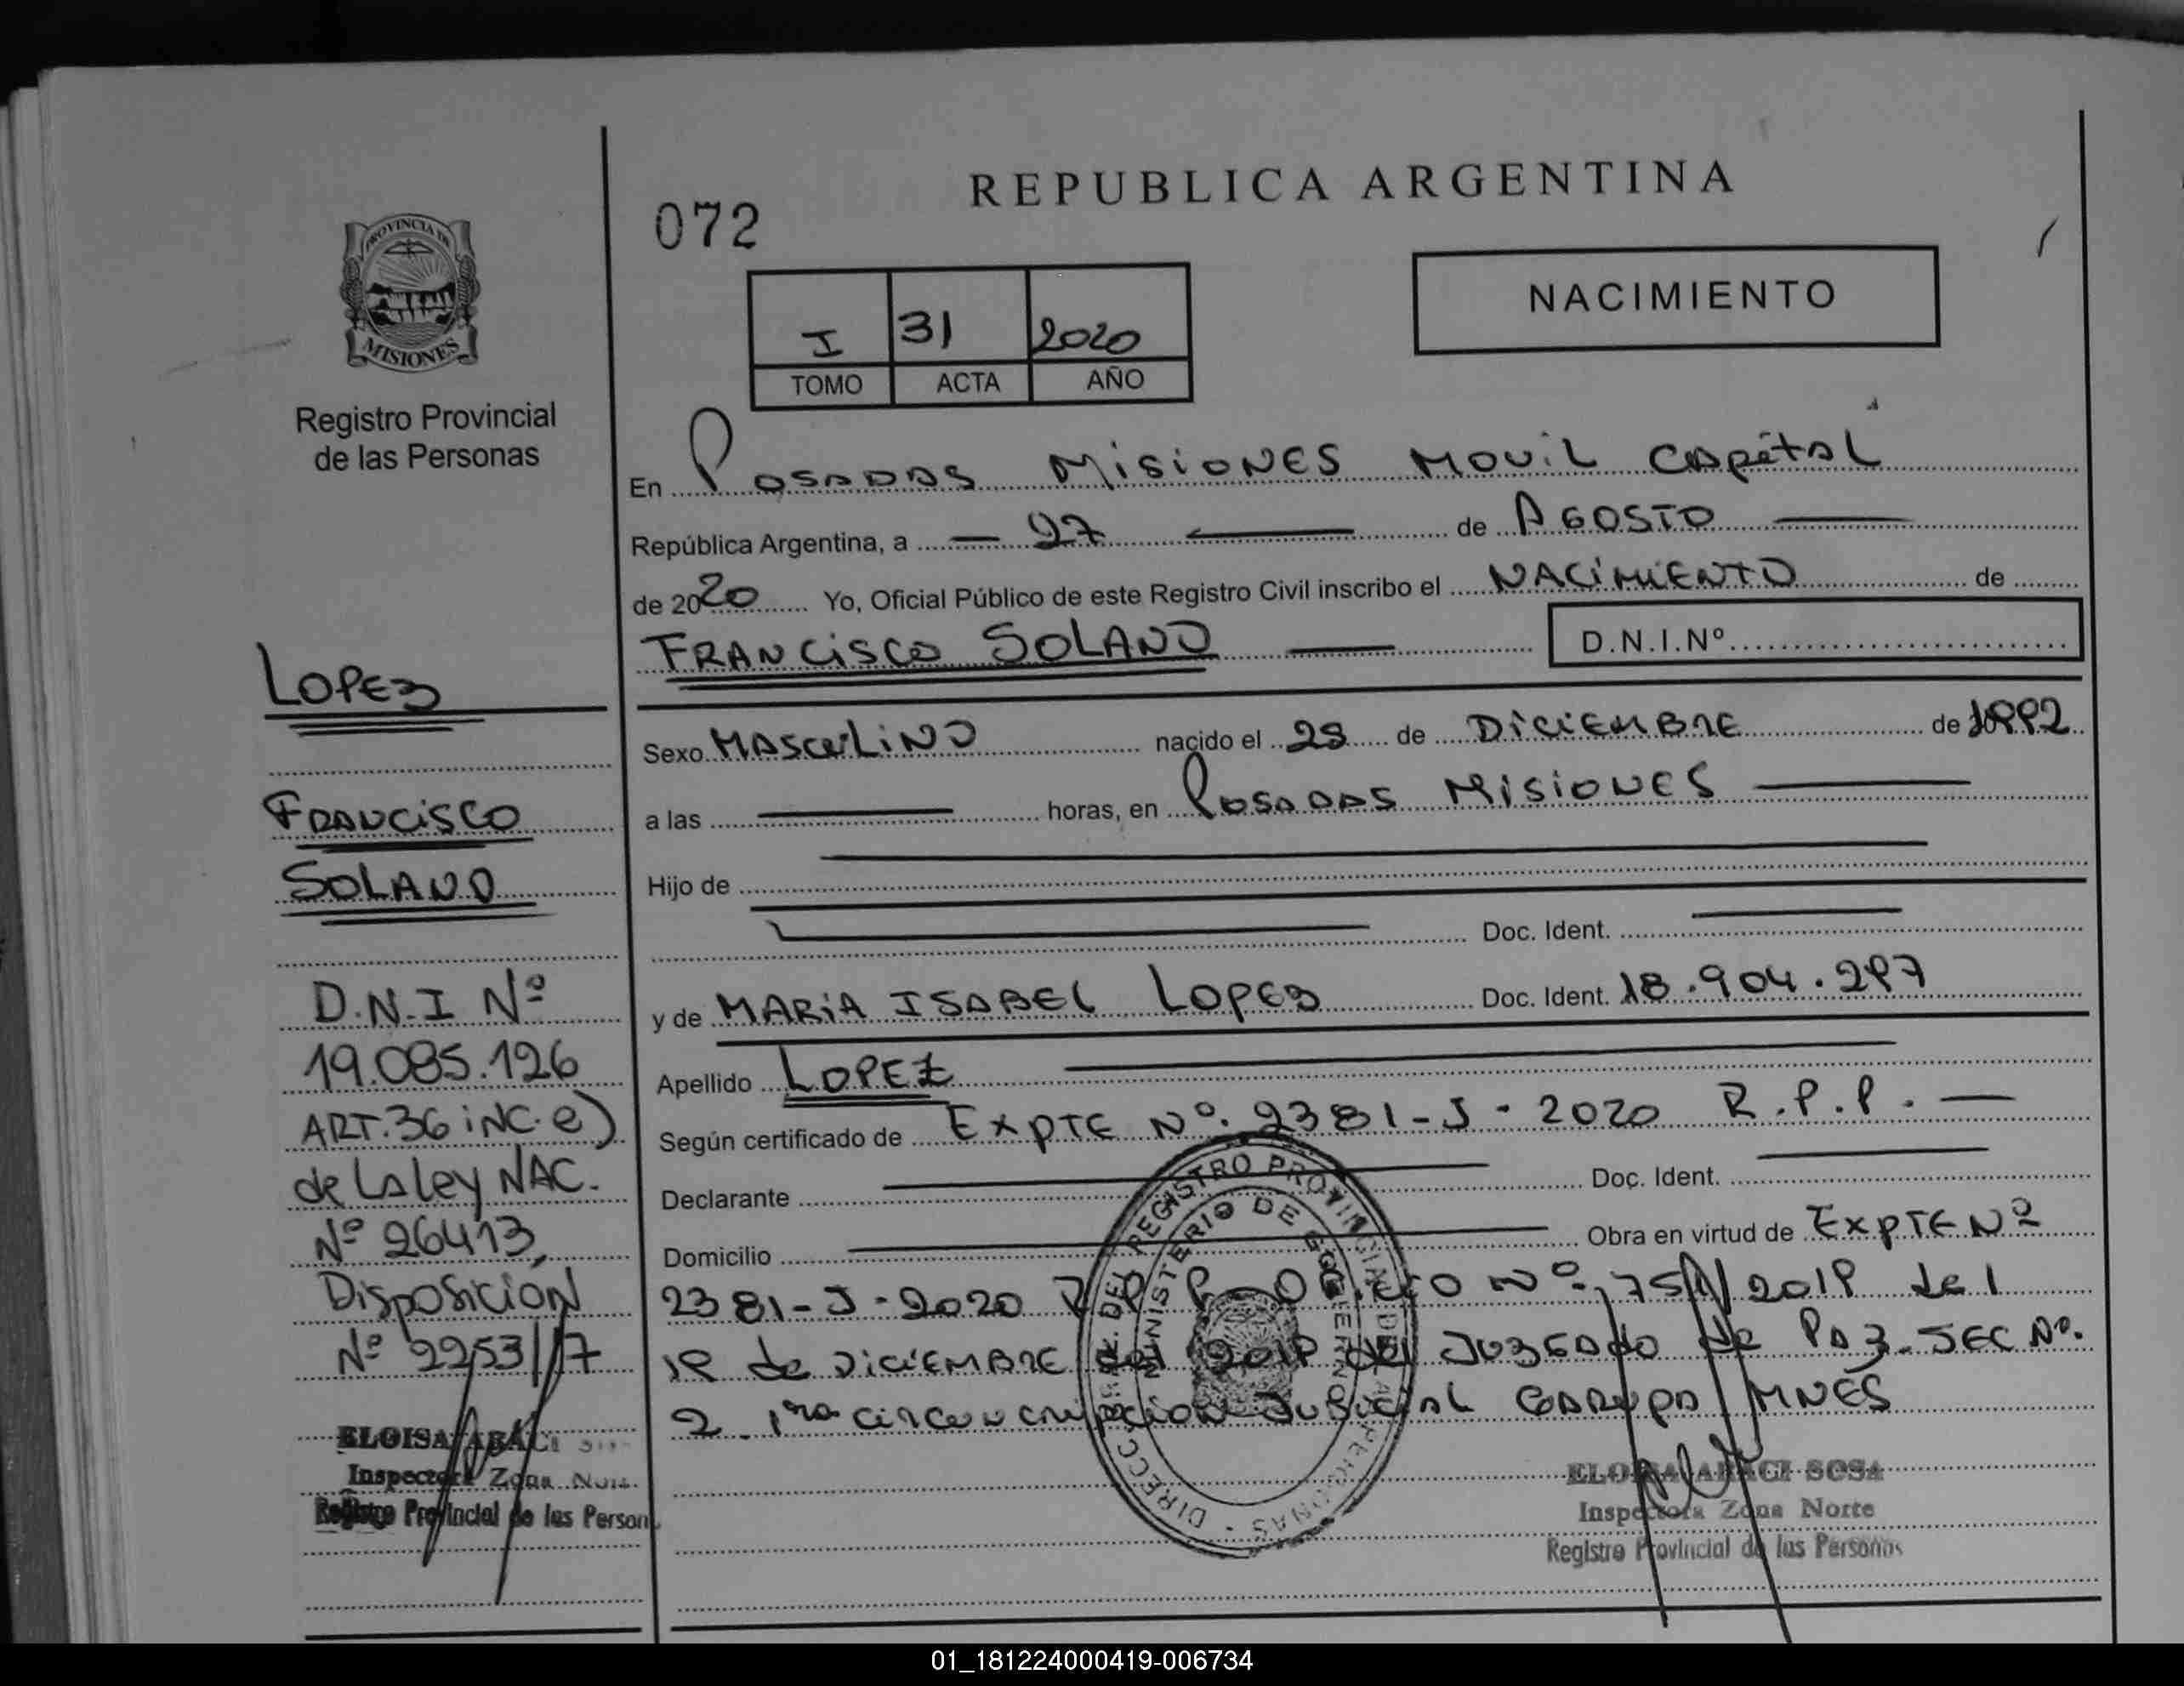 REPUBLICA ARGENTINA
072
NACIMIENTO
I 31 2020
TOMO ACTA AÑO
PROVINCIA DE
MISIONES
Registro Provincial
de las Personas
LOPEZ
FRANCISCO
SOLANO
D.N.I Nº
19.085.126
ART.36 iNC.e)
de La Ley NAC.
Nº 26413,
Disposicion
Nº 2253/17
ELOISA ARACI
Inspectora Zona
Registro Provincial de las Person
En POSADAS MISIONES MOVIL CAPITAL
República Argentina, a 27 de AGOSTO
de 2020 Yo, Oficial Público de este Registro Civil inscribo el NACIMIENTO de
FRANCISCO SOLANO D.N.I.Nº
Sexo MASCULINO nacido el de DICIEMBRE de 1992
a las horas, en POSADAS MISIONES
Hijo de
Doc. Ident.
y de MARIA ISABEL LOPEZ Doc. Ident. 18.904.297
Apellido LOPEZ
Según certificado de EXPTE Nº. 2381-J-2020 R.P.P.
Declarante Doc. Ident.
Domicilio Obra en virtud de EXPTE Nº
2381-J-2020 R.P.P. Nº 2019 del
19 de DICIEMBRE del 2019 del JUZGADO de PAZ-SEC Nº.
2 1ra circunscripcion Judicial GARUPA MNES
DIRECC. GRAL. DEL REGISTRO PROVINCIAL DE LAS PERSONAS
MINISTERIO DE GOBIERNO
ELOISA ARACI SOSA
Inspectora Zona Norte
Registro Provincial de las Personas
01_181224000419-006734